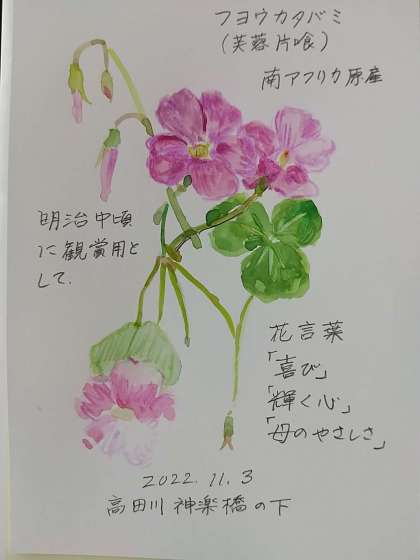 フヨウカタバミ
(芙蓉片喰)
南アフリカ原産
明治中頃
に観賞用と
して.
花言葉
「喜び」
「輝く心」
「母のやさしさ」
2022.11.3
高田川神楽橋の下